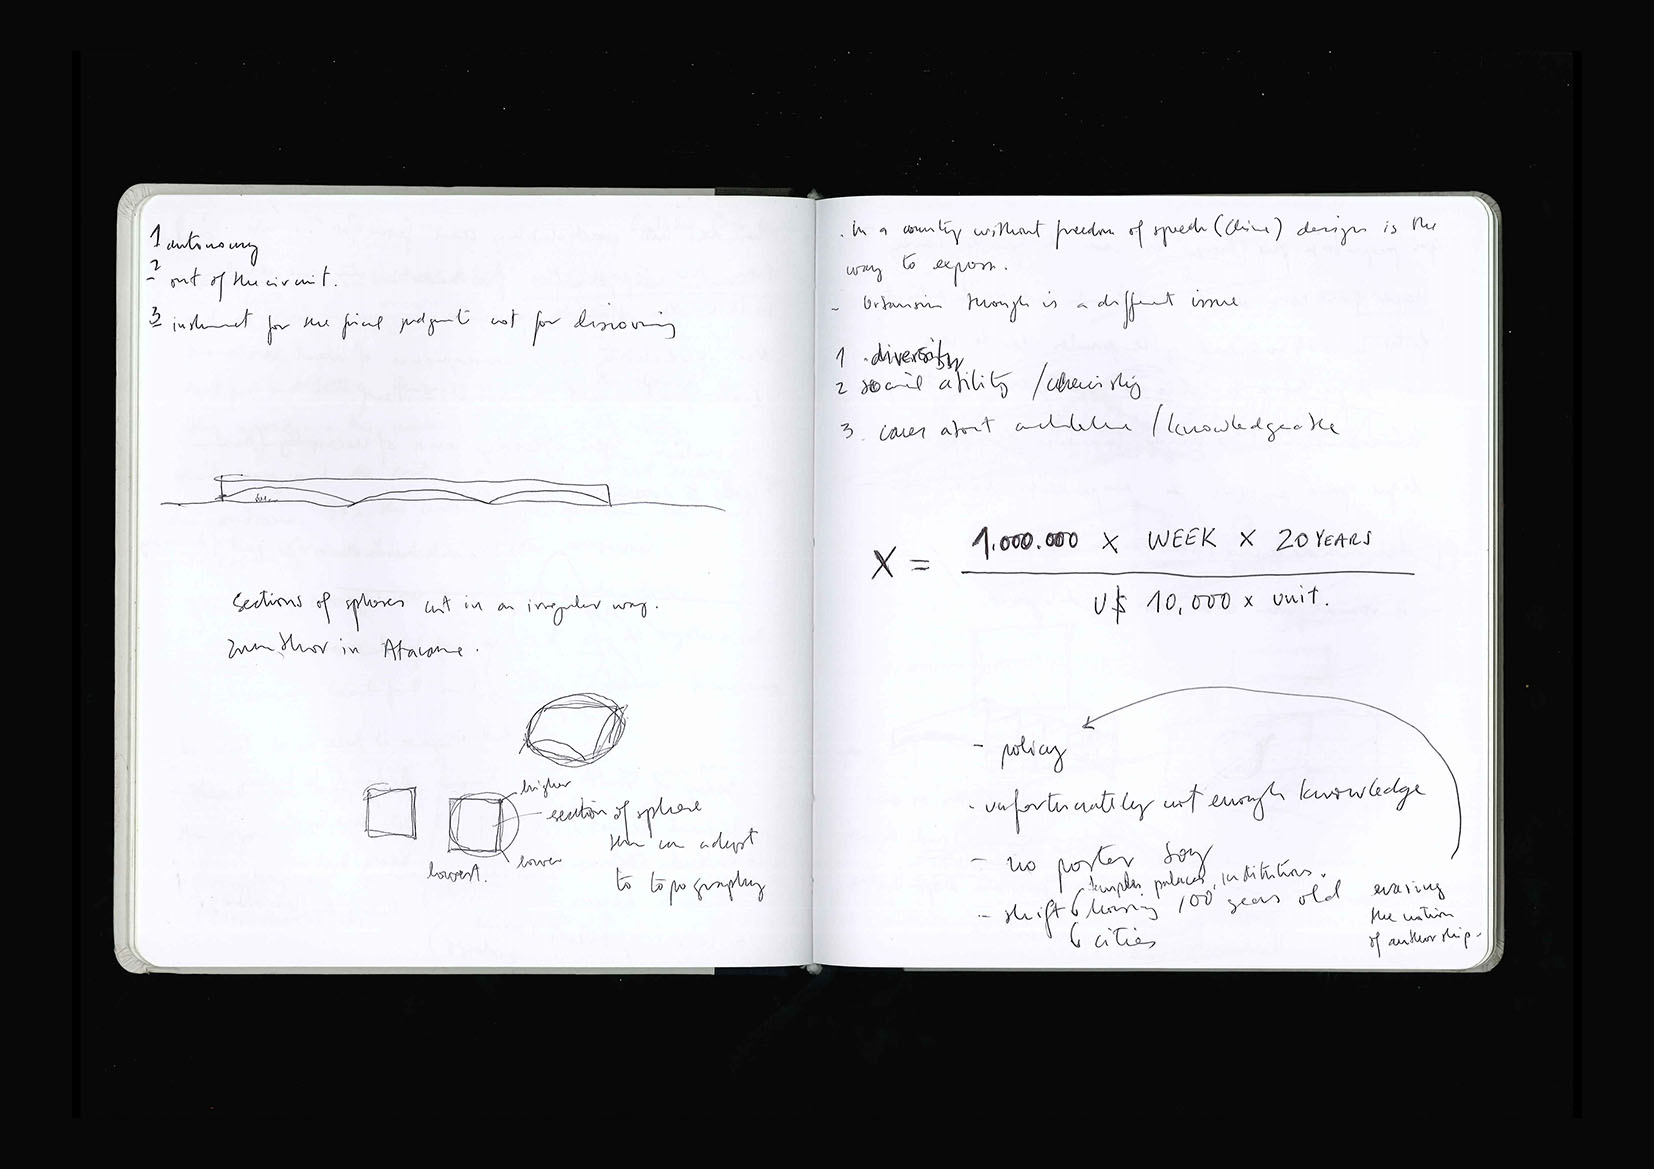 1 autonomy
2 - out of the circuit.
3 instrument for the final judgment not for discovering
sections of spheres cut in an irregular way.
Zumthor in Atacama.
higher
section of sphere
lower
to topography
lowest.
. In a country without freedom of speech (China) design is the
way to
- Urbanism though is a different issue
1 . diversity
2 social ability /
3. cares about architecture / knowledgeable
X = 1.000.000 X WEEK X 20 YEARS
U$ 10,000 x unit.
- policy
- unfortunately not enough knowledge
- no poster boy
temples, palaces, institutions.
- shift housing 100 years old
cities
erasing
the notion
of authorship.